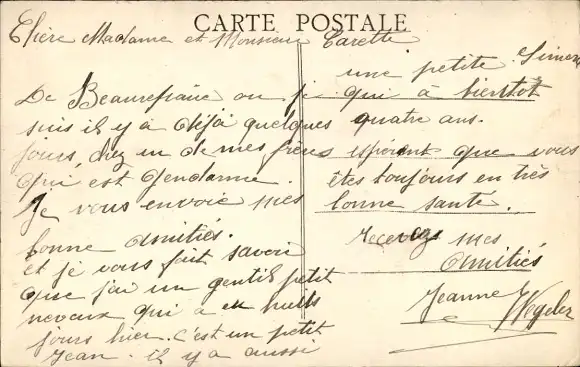 CARTE POSTALE
Chère Madame et Monsieur Carette
De Beaurepaire ou je
suis il y a déjà quelques
jours, chez un de mes frères
qui est Gendarme.
Je vous envoie mes
bonne amitiés.
et je vous fait savoir
que j'ai un gentil petit
neveux qui a eu huits
jours hier. c'est un petit
Jean. il y a aussi
une petite Simone
qui a bientot
quatre ans.
espérant que vous
êtes toujours en très
bonne santé.
recevez mes
Amitiés
Jeanne